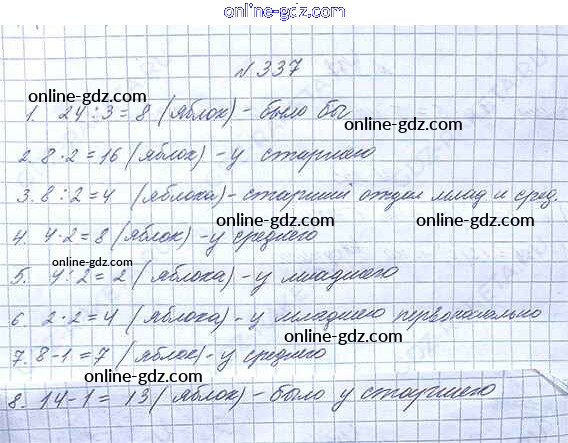 www.online-gdz.com
№337
online-gdz.com
1. 24 : 3 = 8 (яблок) - было бы
online-gdz.com
2. 8 · 2 = 16 (яблок) - у старшего
3. 8 : 2 = 4 (яблока) - старший отдал млад и сред.
online-gdz.com online-gdz.com
4. 4 · 2 = 8 (яблок) - у среднего
online-gdz.com
5. 4 : 2 = 2 (яблока) - у младшего
6. 2 · 2 = 4 (яблока) - у младшего первоначально
online-gdz.com
7. 8 - 1 = 7 (яблок) - у среднего
online-gdz.com
8. 14 - 1 = 13 (яблок) - было у старшего